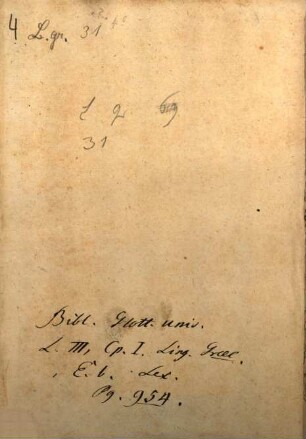 4 L.gr. 31
31
Bibl. Glott. univ.
L. III, Cp. I. Ling. Graec.
E. b. Lex.
Pg. 954.